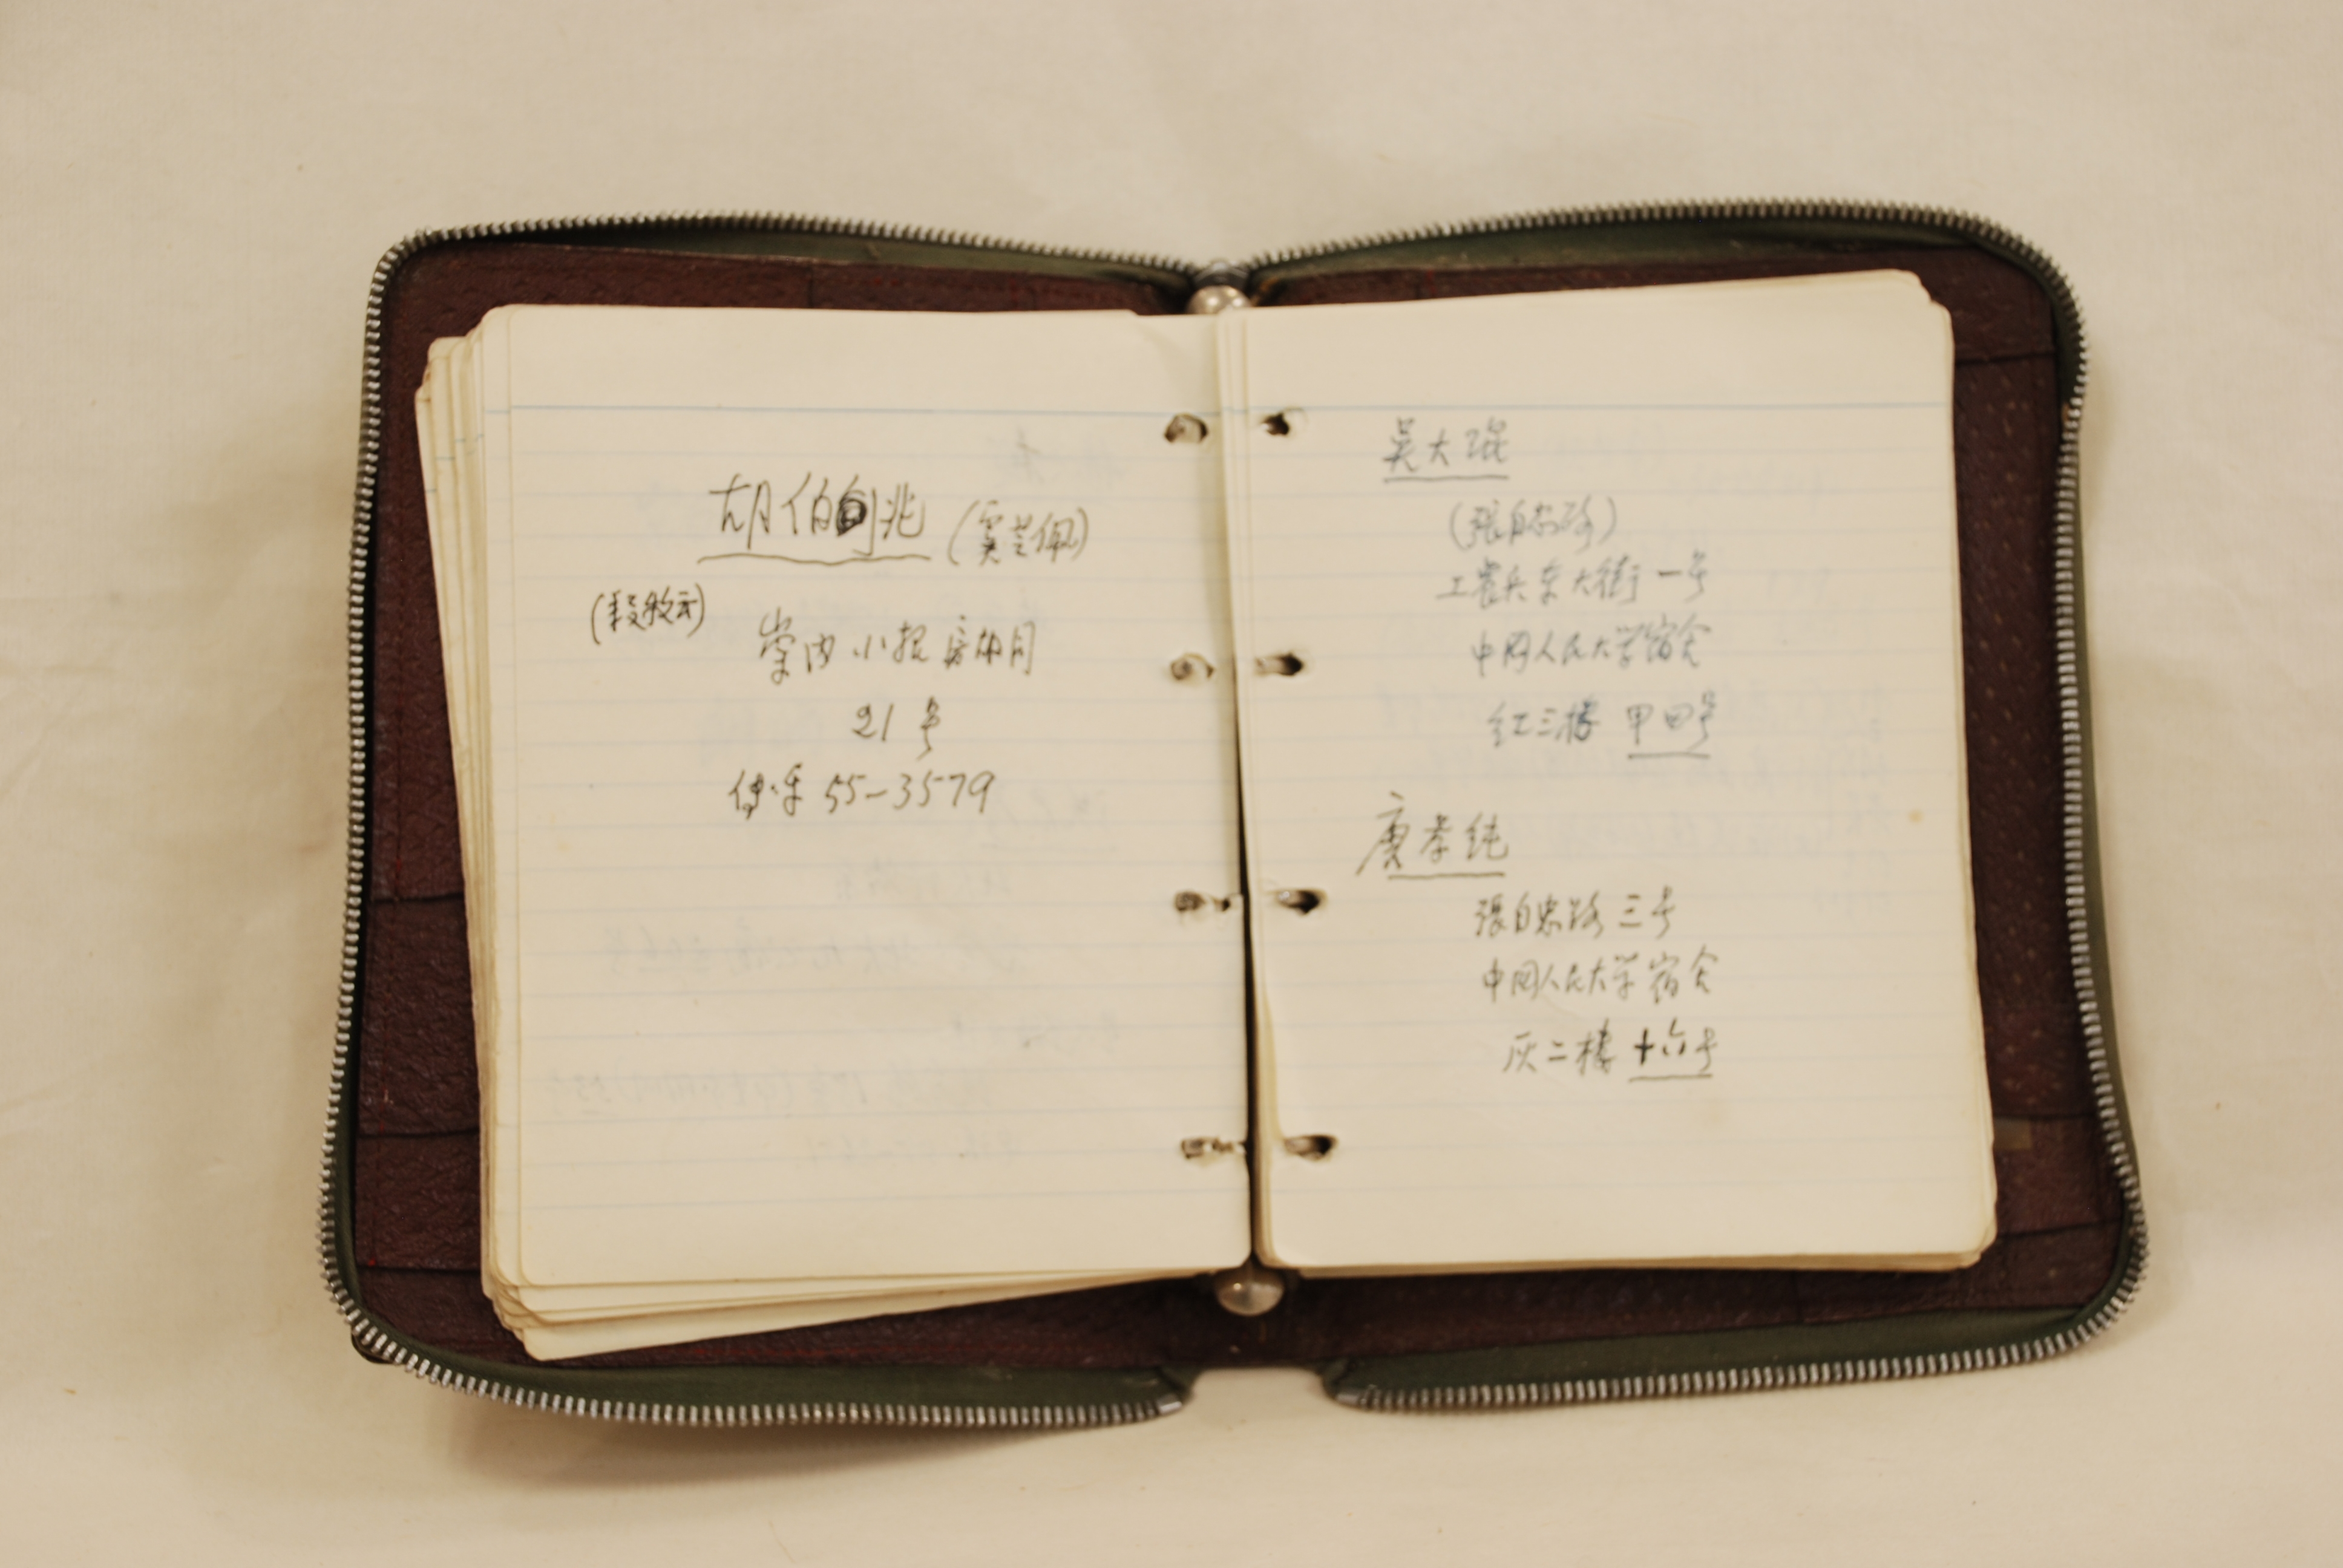 胡伯兆 (窦兰佩)
(段牧云)
崇内小报房胡同
21号
传呼 55-3579
吴大琨
(張自忠路)
工雀兵东大街一号
中国人民大学宿舍
红三楼 甲四号
唐孝纯
張自忠路三号
中国人民大学宿舍
灰二楼 十六号